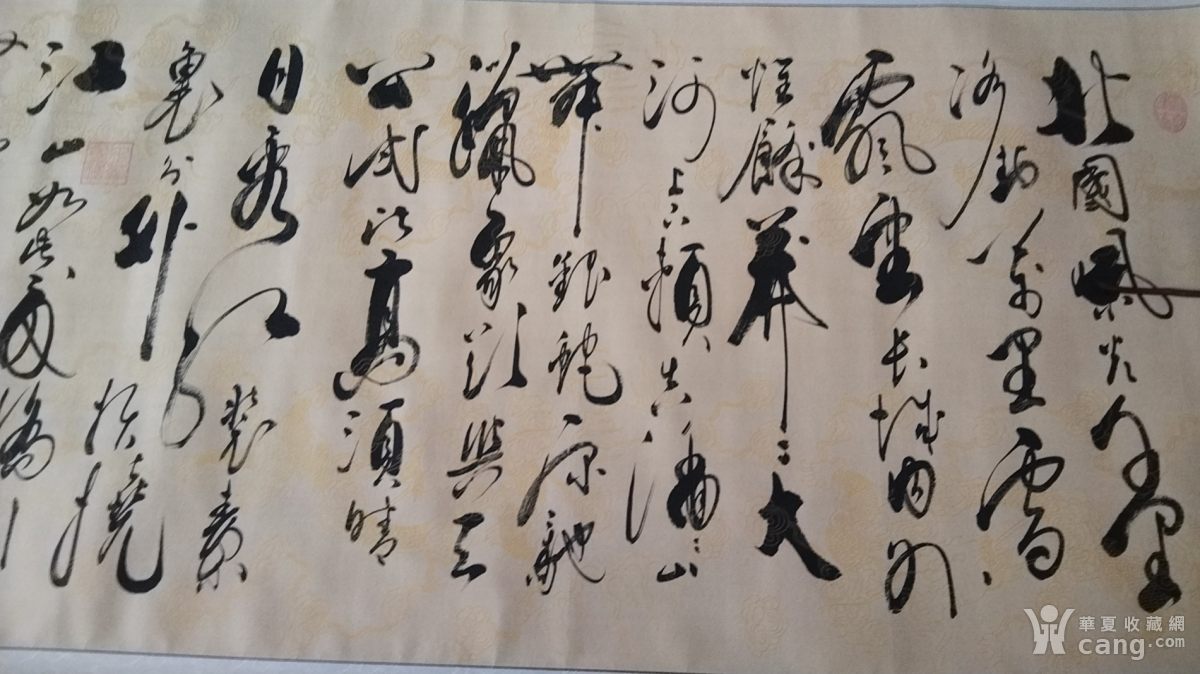 北國風光千里
冰封萬里雪
飄望長城内外
惟餘莽〻大
河上下頓失滔〻山
舞銀蛇原馳
蠟象欲與天
公試比高須晴
日看紅裝素
裹分外妖嬈
江山如此多嬌引
華夏收藏網
cang.com